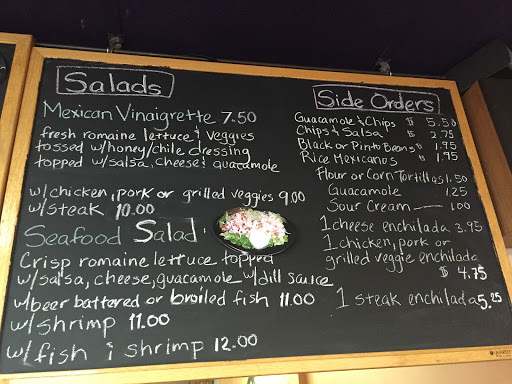 Salads
Mexican Vinaigrette 7.50
fresh romaine lettuce & veggies
tossed w/honey/chile dressing
topped w/salsa, cheese & guacamole
w/chicken, pork or grilled veggies 9.00
w/steak 10.00
Seafood Salad
Crisp romaine lettuce topped
w/salsa, cheese, guacamole w/dill sauce
w/beer battered or broiled fish 11.00
w/shrimp 11.00
w/fish & shrimp 12.00
Side Orders
Guacamole & Chips $ 5.50
Chips & Salsa $ 2.75
Black or Pinto Beans $ 1.95
Rice Mexicanos $ 1.95
Flour or Corn Tortillas 1.50
Guacamole 1.25
Sour Cream — 1.00
1 cheese enchilada 3.95
1 chicken, pork or
grilled veggie enchilada
$ 4.75
1 steak enchilada 5.25